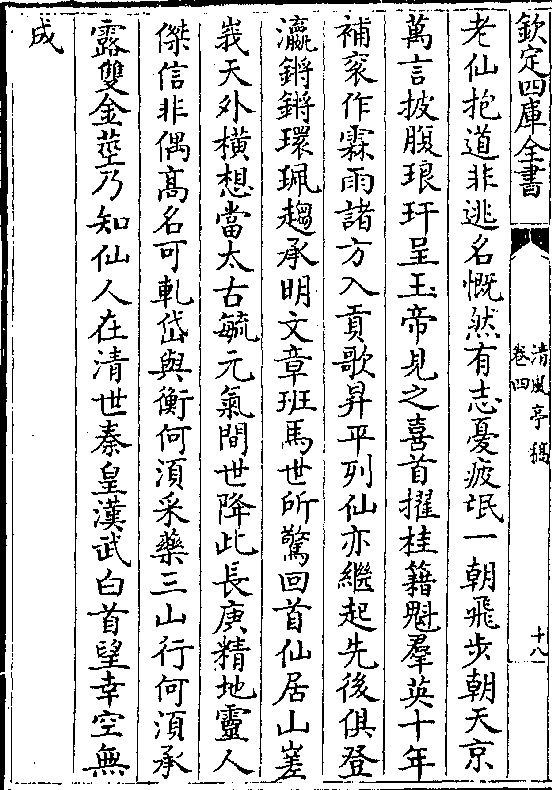 欽定四庫全書
清風亭稿
卷四
十八
老仙抱道非逃名慨然有志憂疲氓一朝飛步朝天京
萬言披腹琅玕呈玉帝見之喜首擢桂籍魁羣英十年
補衮作霖雨諸方入貢歌昇平列仙亦繼起先後俱登
瀛鏘鏘環珮趨承明文章班馬世所驚回首仙居山嵳
峩天外橫想當太古毓元氣間世降此長庚精地靈人
傑信非偶高名可軋岱與衡何須采藥三山行何須承
露雙金莖乃知仙人在清世秦皇漢武白首望幸空無
成